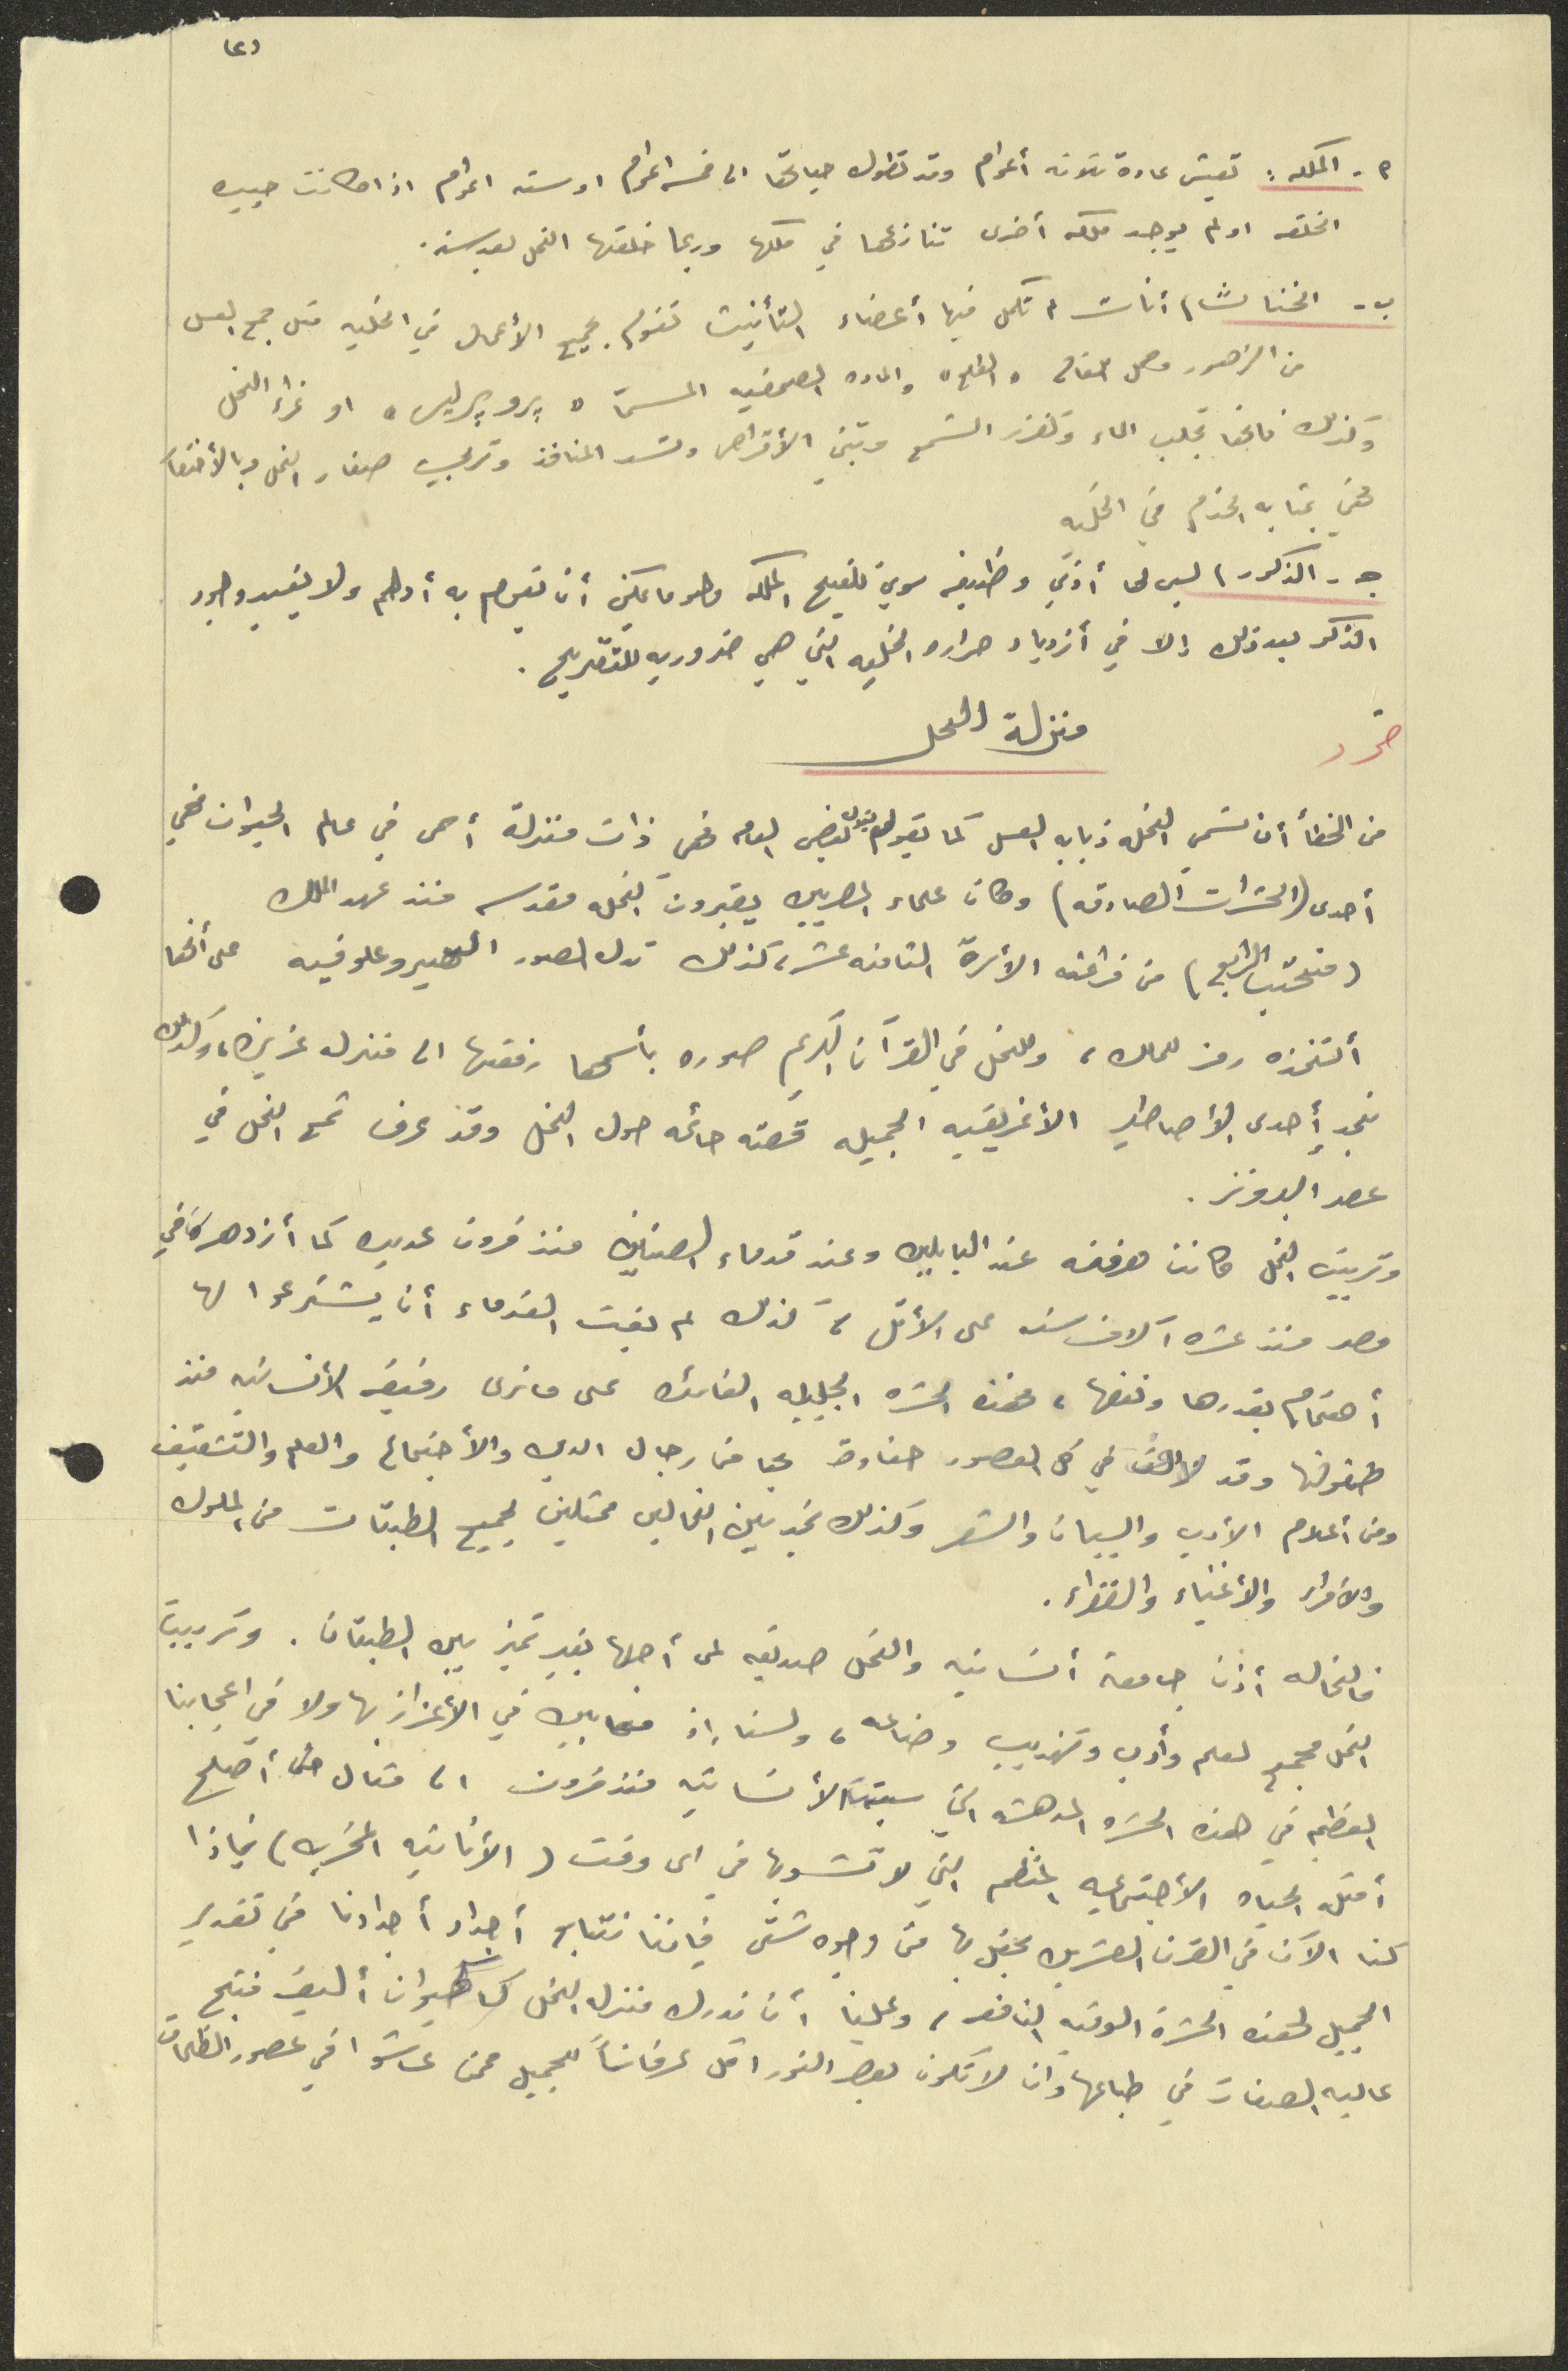 (٢)
٢- الملكه : تعيش عادة ثلاثة أعوام وقد تطول حياتها الى خمسة اعوام او سته اعوام اذا كانت جيده
الخلقه او لم يوجد ملكه أخرى تنازعها في ملكها وربما خلفتها النحل بعد سنه .
ب- الخناث ، أناث لم تكمل فيها أعضاء التأنيث تقوم بجميع الأعمال في الخليه مثل جمع العسل
من الزهور وحمل اللقاح " الطلع " والماده الصمغيه المسمّاة " پروپوليس " او غراء النحل
وكذلك فانها تجلب الماء وتفرز الشمع وتبني الأقراص وتسد المنافذ وتربي صغار النحل وبالأختصار
فهي بمثابه الخدم في الخليه
جـ- الذكور ، ليس لها أدنى وظيفه سوى تلقيح الملكه وهو ما يمكن أن تقوم به أحدهم ولا يفيد وجود
الذكر بعد ذلك إلا في أزدياد حراره الخليه التي هي ضروريه للتفريخ .
منزلة النحل
من الخطأ أن تسمى النحله ذبابه العسل كما يقول بعض العامه فهي ذات منزلة أسمى في عالم الحيوان فهي
أحدى (الحشرات الصادقه) وكان علماء المصريين يعتبرون النحله مقدسه منذ عهد الملك
(منحتب الرابع) من فراعنه الأسرة الثامنه عشر ، كذلك تدل الصور الهيروغلوفيه على أنها
أتخذه رمز للملك ، وللنحل في القرآن الكريم صوره بأسمها رفعتها الى منزله عزيزه ، وكذلك
نجد إحدى الأصاطير الأغريقيه الجميله قصته حائمه حول النحل وقد عرف شمع النحل في
عصر البرونز .
وتربيت النحل كانت معرفه عند البابلين وعند قدماء الصينين منذ قرون عديده كما أزدهر كافي
مصر منذ عشره آلاف سنه على الأقل ، كذلك لم يفت القدماء أن يشترعوا لها
أهتمام بقدرها ونفعها ، فهذه الحشره الجليله الفائده على ما نرى رفيقه الأنسانيه منذ
طفولتها وقد لاقت في كل العصور حفاوة بها من رجال الدين والأجتماع والعلم والتثقيف
ومن أعلام الأدب والبيان والشعر وكذلك نجد بين النحالين ممثلين لجميع الطبقات من الملوك
والامراء والأغنياء والفقراء .
فالنحاله أذن جامعة أنسانيه والنحل صديقه لمن أحبها بغير تميز بين الطبقات . وتربيت
النحل مجمع لعلم وأدب وتهذيب وصناعه ، ولسنا إذ مغالين في الأعتزاز بها ولا في اعجابنا
العظيم في هذه الحشره المدهشه التي سبقت الأنسانيه منذ قرون الى مثال من أصلح
أمثله الحياه الأجتماعيه المنظم التي لا تشوبها في اى وقت (الأنانيه المخربه) فإذا
كنا الآن في القرن العشرين نحتفل بها من وجوه شتى فاننا نتابع أجداد أجدادنا في تقدير
الجميل لهذه الحشرة الوفيه النافعه ، وعلينا أن ندرك منزله النحل كحيوان أليف فتح
عاليه الصفات في طباعها وان لا تكون بعصر النور اقل عرفاناً للجميل ممن عاشوا في عصور الظلمات